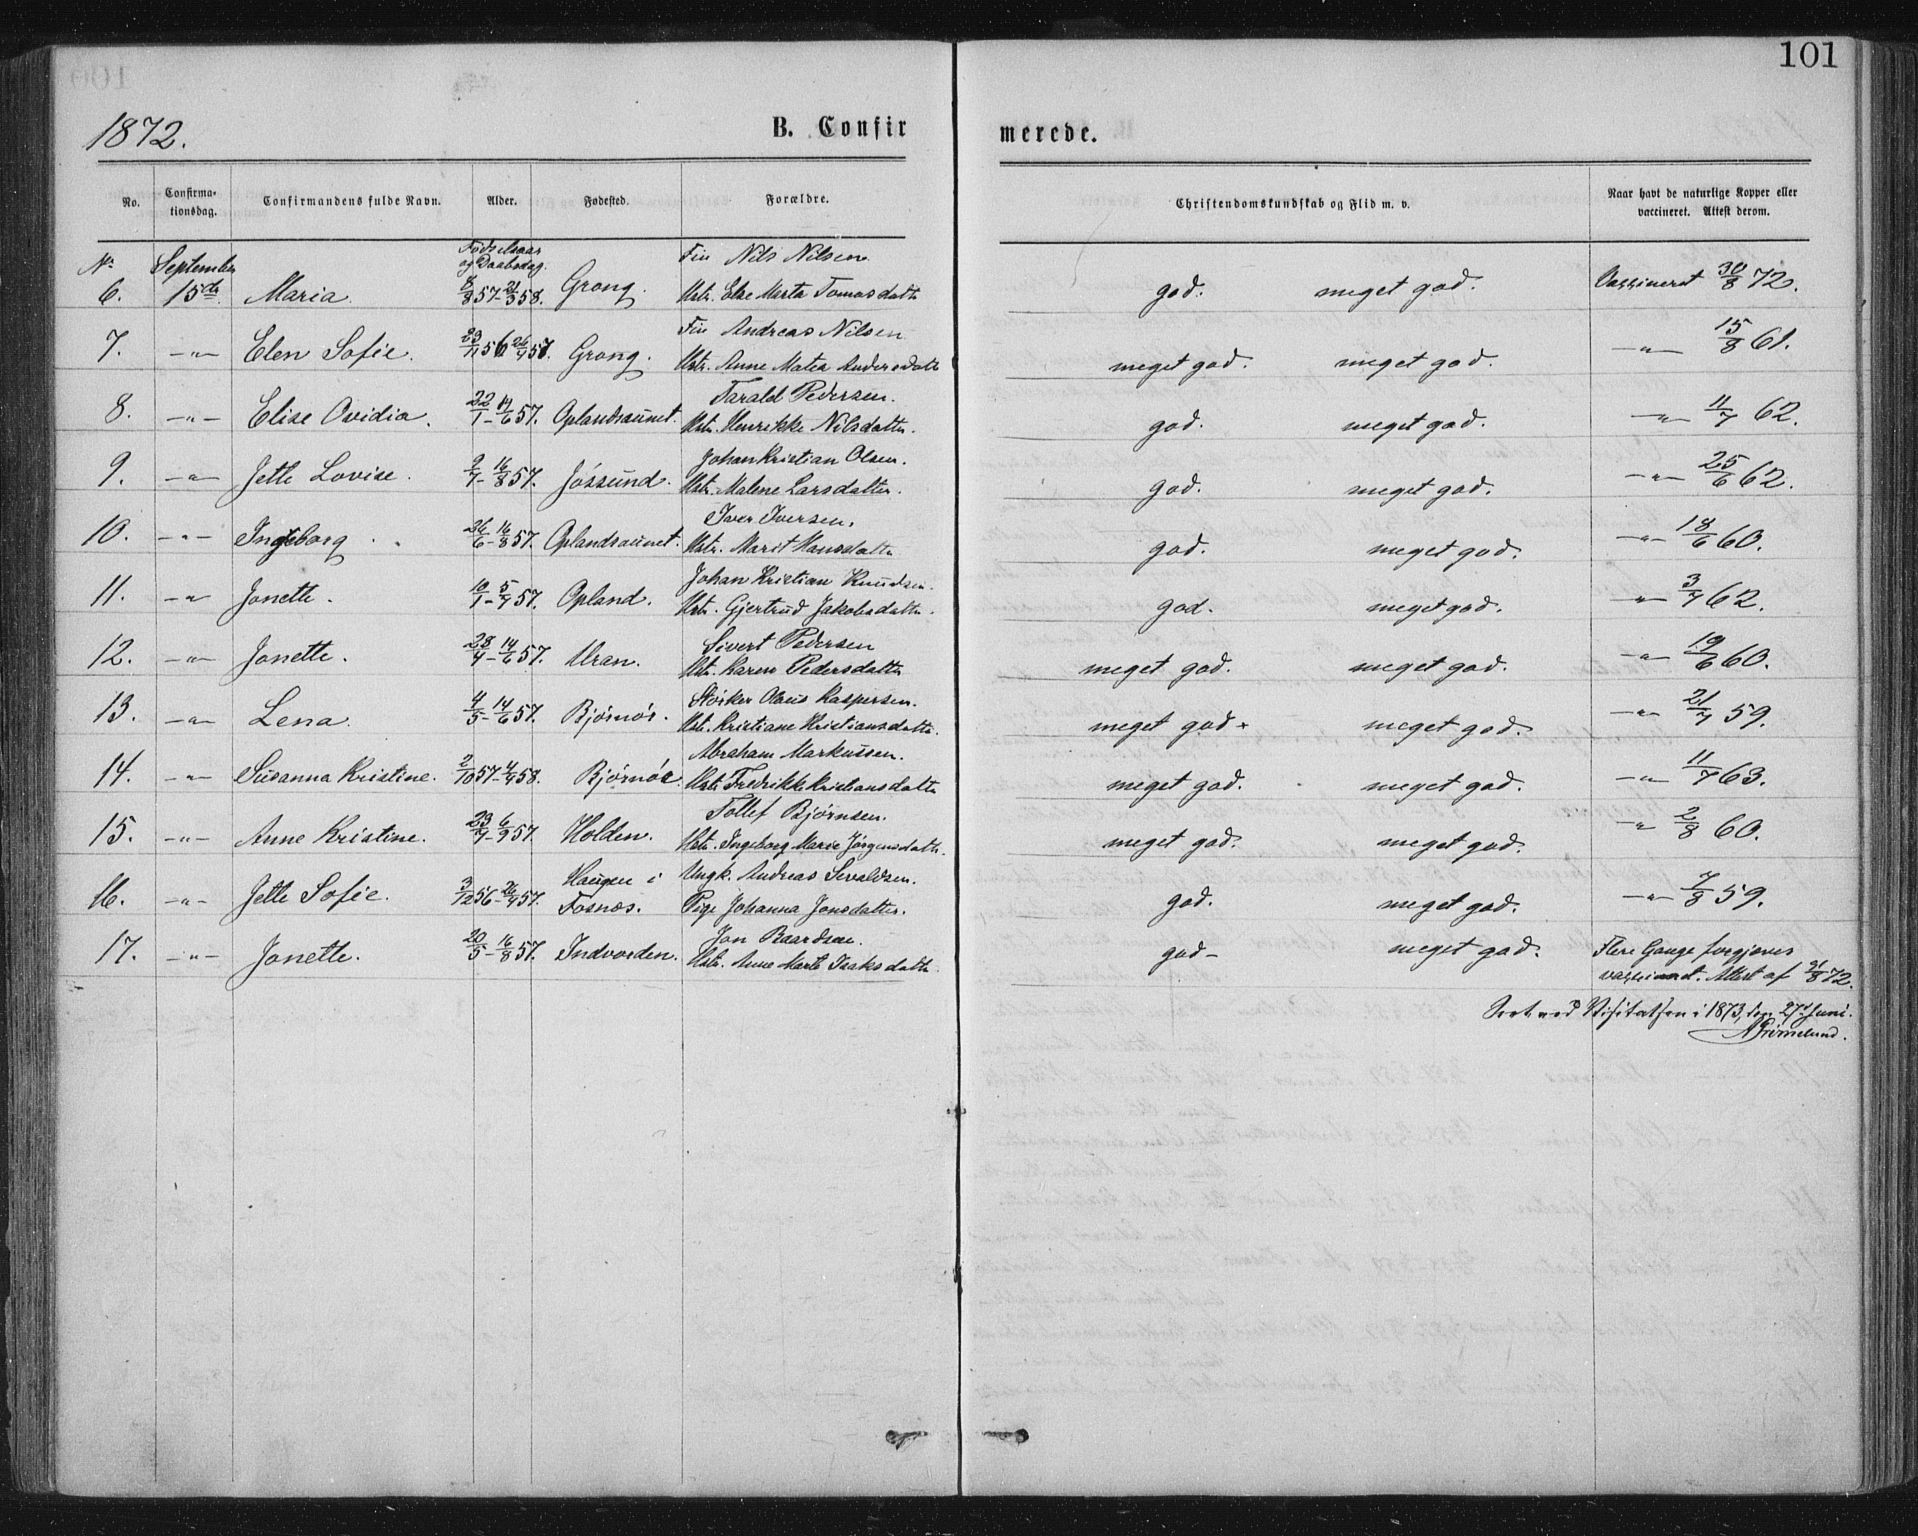 101
1872.
B. Confirmerede.
No.
Confirmationsdag.
Confirmandens fulde Navn.
Alder.
Fødested.
Forældre.
Christendomskundskab og Flid m. v.
Naar havt de naturlige Kopper eller vaccineret. Attest derom.
No. September Fødselsaar og Daabsdag. Fin Nils Nilsen
6. 15de Maria. 8/8 57-21/3 58. Grong. Hstr. Else Marta Tomasdatt god. meget god. Vassineret 30/8 72.
Fin Andreas Nilsen
7. -"- Elen Sofie. 23/11 56 26/4 57. Grong. Hstr. Anne Matea Andersdatt meget god. meget god. -"- 15/8 61.
Tarald Pedersen.
8. -"- Elise Ovidia. 22/1-14/6 57. Oplandsaunet. Hstr. Henrikke Nilsdatter. god. meget god. -"- 11/7 62.
Johan Kristian Olsen.
9. -"- Jette Lovise. 2/7-16/8 57. Jøssund. Hstr. Malene Larsdatter. god. meget god. -"- 25/6 62.
Iver Iversen.
10. -"- Ingeborg. 26/6-16/8 57. Oplandsaunet. Hstr. Marit Hansdatter god. meget god. -"- 18/6 60.
Johan Kristian Knudsen.
11. -"- Jonette. 10/1-5/7 57. Opland. Hstr. Gjertrud Jakobsdatter. god. meget god. -"- 3/7 62.
Sivert Pedersen
12. -"- Jonette. 28/4-14/6 57. Uran. Hstr. Karen Pedersdatter meget god. meget god. -"- 19/6 60.
Størker Olaus Kaspersen.
13. -"- Lena. 4/5-14/6 57. Bjørnør. Hstr. Kristiane Kristiansdatter. meget god. meget god. -"- 21/7 59.
Abraham Markussen.
14. -"- Susanna Kristine. 2/10 57-4/4 58. Bjørnør Hstr. Fredrikke Kristiansdatter meget god. meget god. -"- 11/7 63.
Tollef Bjørnsen.
15. -"- Anne Kristine. 23/7-6/9 57. Holden. Hstr. Ingeborg Marie Jørgensdatter. meget god. meget god. -"- 2/8 60.
Haugen i Ungk. Andreas Sevaldsen.
16. -"- Jette Sofie. 3/12 56-26/4 57. Fosnæs. Pige Johanna Jonsdatter. god. meget god. -"- 7/8 59.
Jon Baardsen.
17. -"- Jonette. 20/5-16/8 57. Indvorden. Hstr. Anne Marta Isaksdatter. god- meget god. Flere Gange forgjæves
vassineret. Attest af 31/8 72.
Seet ved Visitatsen i 1873, den 27de Juni.
A Grimelund.